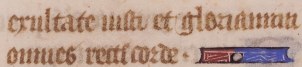 exultate iusti et gloriamini
omnes recti corde ·